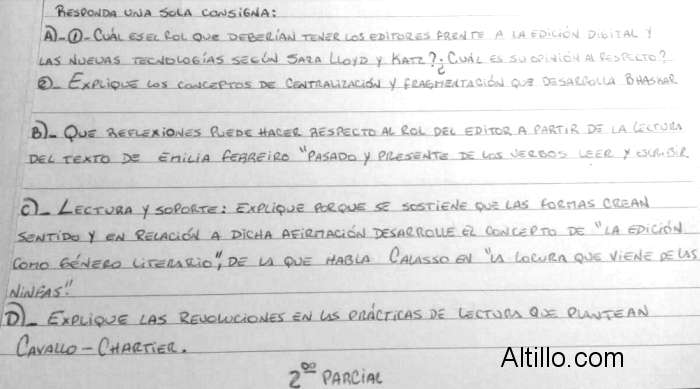 RESPONDA UNA SOLA CONSIGNA:
A)-①-CUÁL ES EL ROL QUE DEBERÍAN TENER LOS EDITORES FRENTE A LA EDICIÓN DIGITAL Y
LAS NUEVAS TECNOLOGÍAS SEGÚN SARA LLOYD Y KATZ? ¿CUÁL ES SU OPINIÓN AL RESPECTO?
②- EXPLIQUE LOS CONCEPTOS DE CENTRALIZACIÓN Y FRAGMENTACIÓN QUE DESARROLLA BHASKAR
B)- QUE REFLEXIONES PUEDE HACER RESPECTO AL ROL DEL EDITOR A PARTIR DE LA LECTURA
DEL TEXTO DE EMILIA FERREIRO "PASADO Y PRESENTE DE LOS VERBOS LEER Y ESCRIBIR
C)- LECTURA Y SOPORTE: EXPLIQUE PORQUE SE SOSTIENE QUE LAS FORMAS CREAN
SENTIDO Y EN RELACIÓN A DICHA AFIRMACIÓN DESARROLLE EL CONCEPTO DE "LA EDICIÓN
COMO GÉNERO LITERARIO", DE LA QUE HABLA CALASSO EN "LA LOCURA QUE VIENE DE LAS
NINFAS."
D)- EXPLIQUE LAS REVOLUCIONES EN LAS PRÁCTICAS DE LECTURA QUE PLANTEAN
CAVALLO-CHARTIER.
Altillo.com
2do PARCIAL